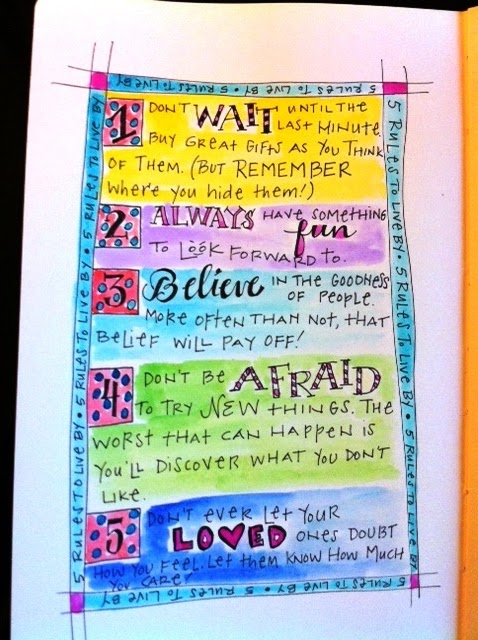 5 RULES TO LIVE BY • 5 RULES TO LIVE BY
5 RULES TO LIVE BY • 5 RULES TO LIVE BY • 5 RULES TO LIVE BY
5 RULES TO LIVE BY • 5 RULES TO LIVE BY • 5 RULES TO LIVE BY
1 DON'T WAIT UNTIL THE
LAST MINUTE.
BUY GREAT GIFTS AS YOU THINK
OF THEM. (BUT REMEMBER
where you hide them!)
2 ALWAYS HAVE SOMETHING
fun
TO LOOK FORWARD TO.
3 Believe IN THE GOODNESS
OF PEOPLE.
MORE OFTEN THAN NOT, THAT
BELIEF WILL PAY OFF!
4 DON'T BE AFRAID
TO TRY NEW THINGS. THE
WORST THAT CAN HAPPEN IS
YOU'LL DISCOVER WHAT YOU DON'T
LIKE.
5 DON'T EVER LET YOUR
LOVED ONES DOUBT
HOW YOU FEEL. LET THEM KNOW HOW MUCH
YOU CARE!
5 RULES TO LIVE BY • 5 RULES TO LIVE BY